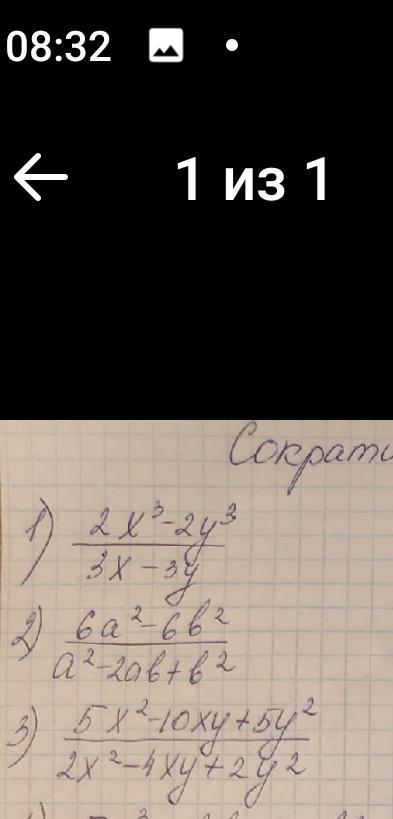 08:32
1 из 1
Сократи
1) (2x³-2y³)/(3x-3y)
2) (6a²-6b²)/(a²-2ab+b²)
3) (5x²-10xy+5y²)/(2x²-4xy+2y²)